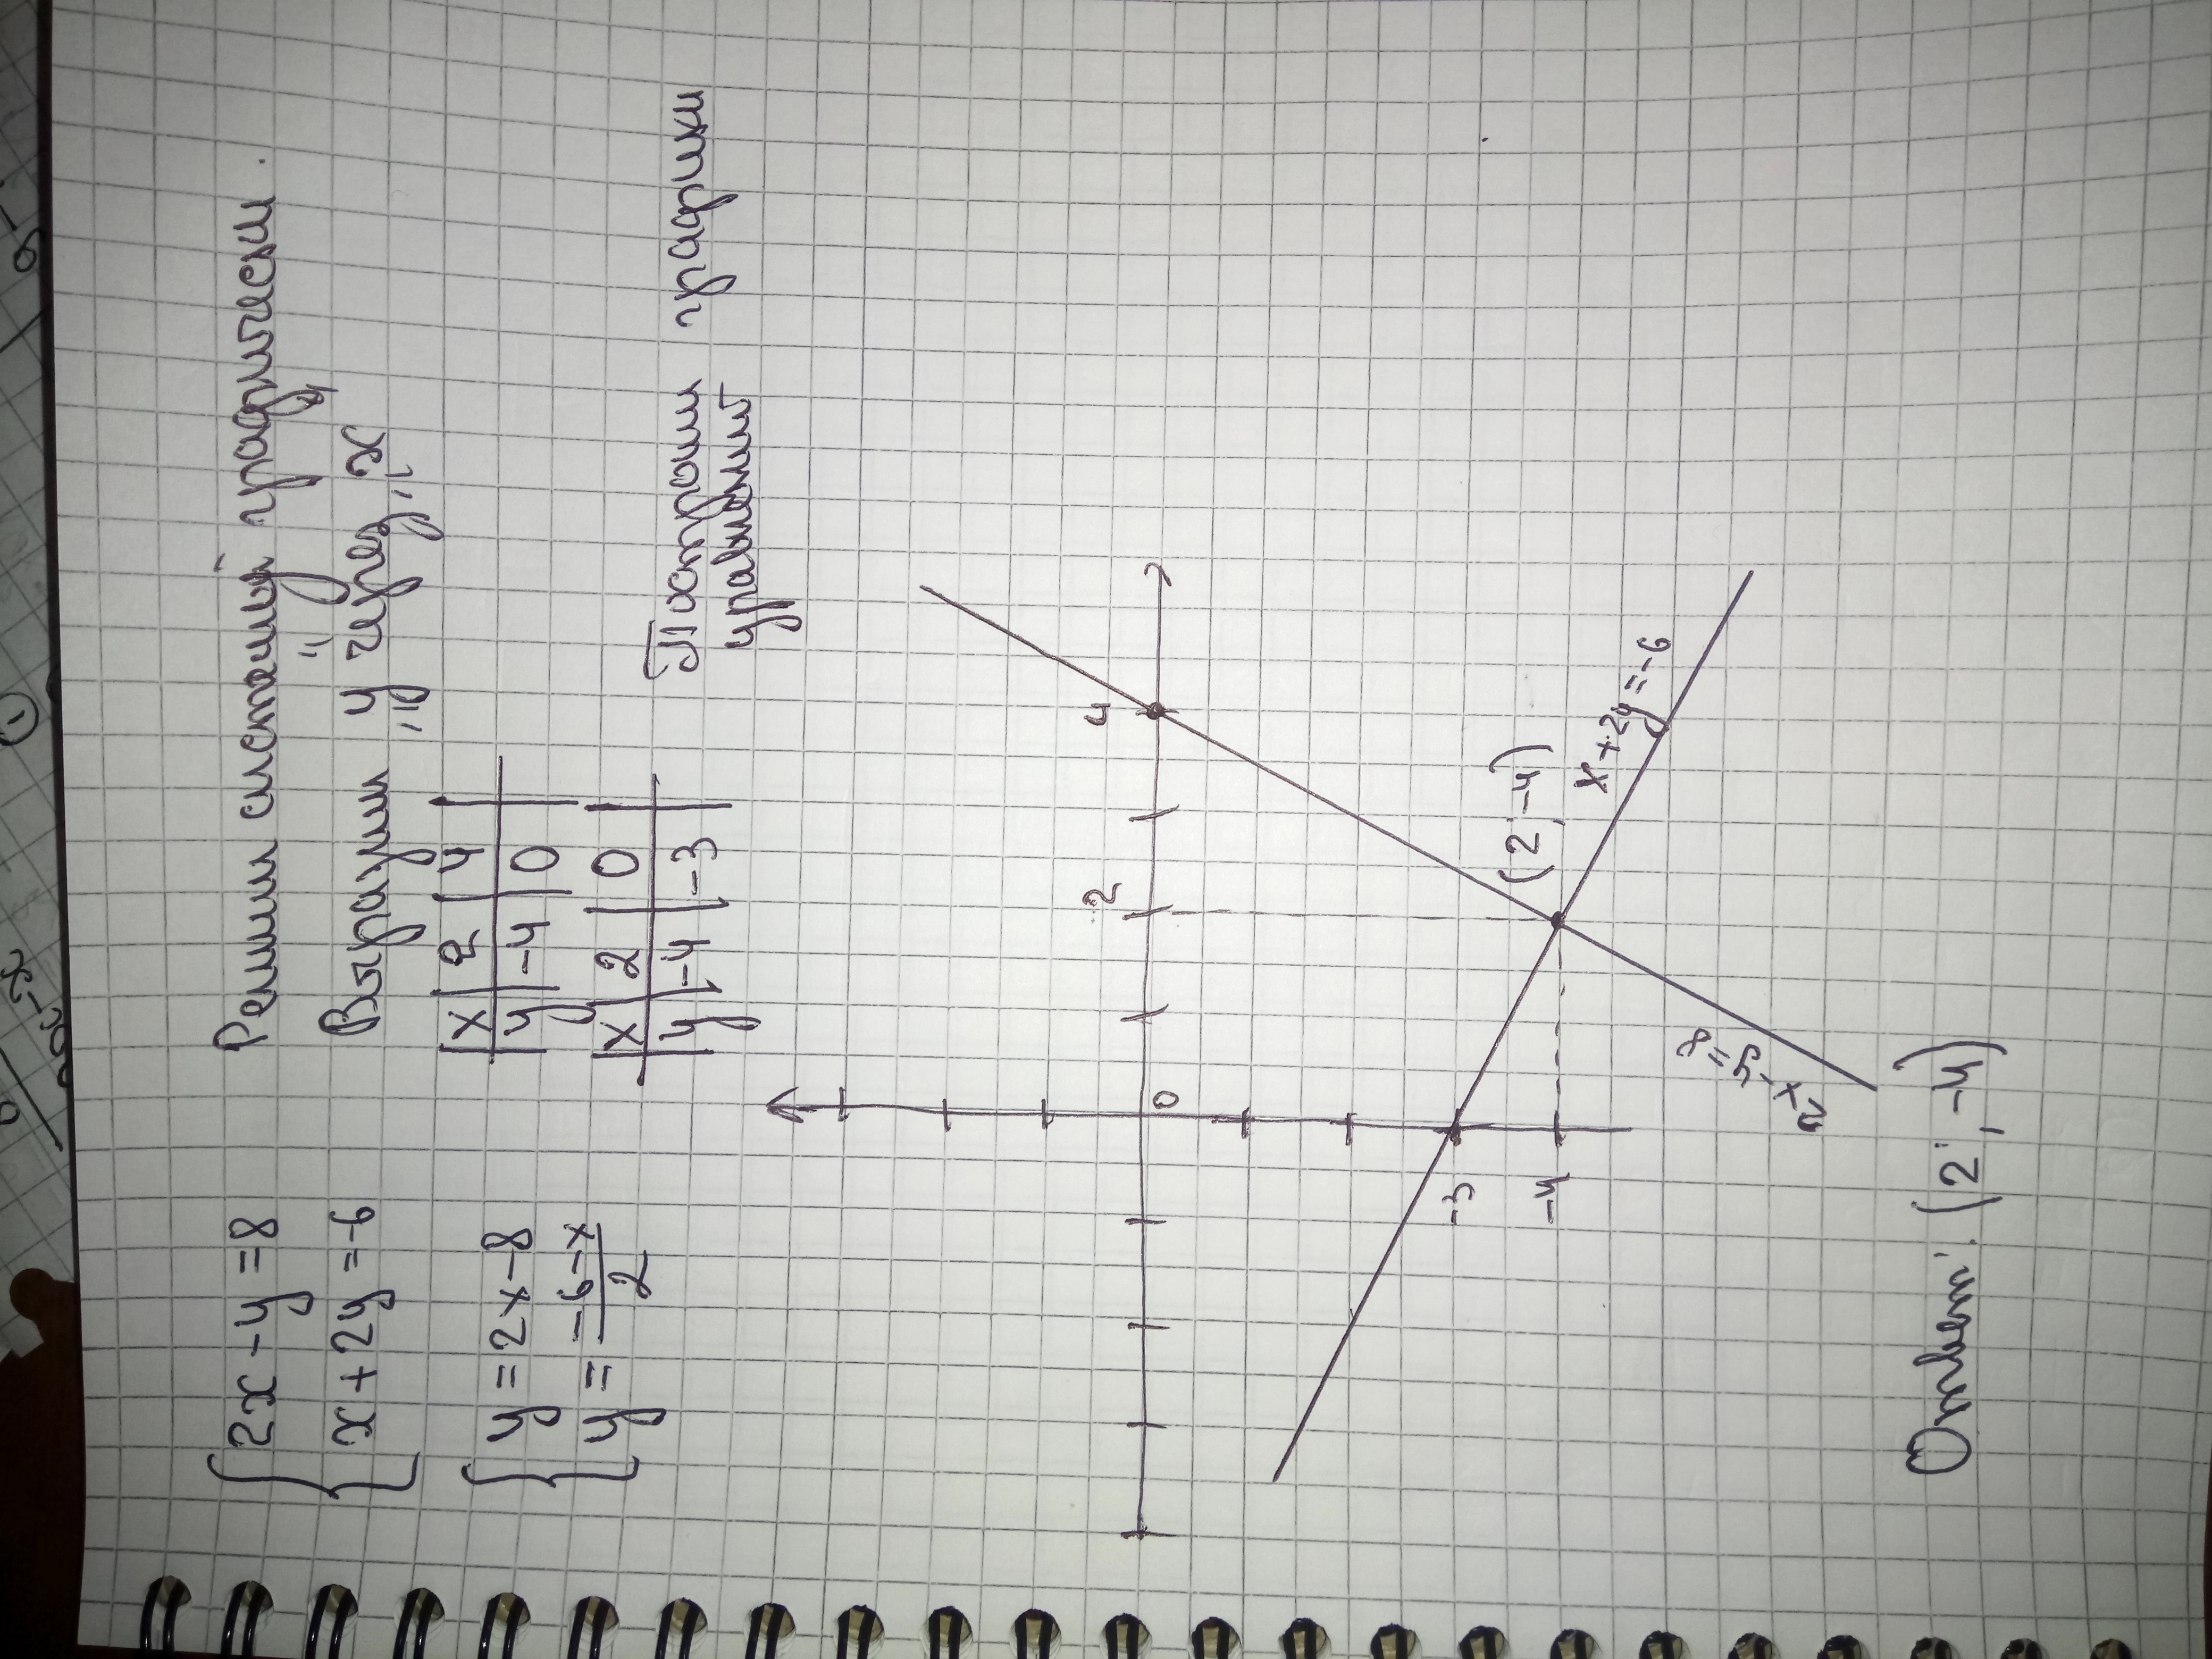 { 2x - y = 8
x + 2y = -6
Решим систему графически.
Выразим „у" через „x"
{ y = 2x - 8
y = -6-x / 2
x | 2 | 4
y | -4 | 0
x | 2 | 0
y | -4 | -3
Построим графики
уравнений
2
4
0
-3
-4
(2; -4)
x+2y=-6
2x-y=8
Ответ: (2; -4)